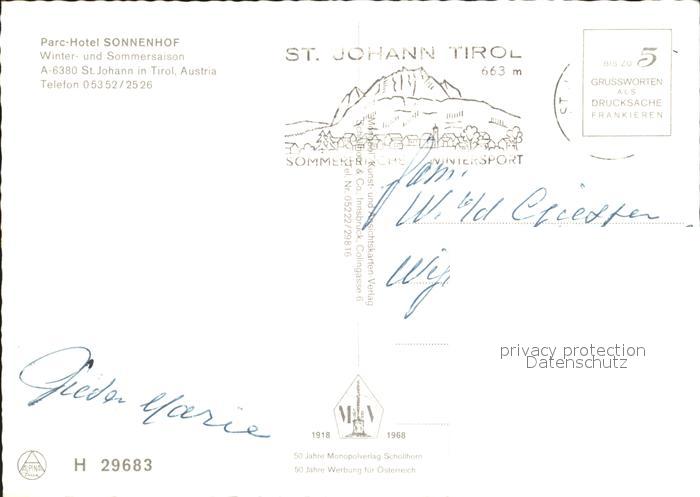 Parc-Hotel SONNENHOF
Winter- und Sommersaison
A-6380 St. Johann in Tirol, Austria
Telefon 05352/2526
ST. JOHANN TIROL
663 m
SOMMERFRISCHE WINTERSPORT
BIS ZU 5
GRUSSWORTEN
ALS
DRUCKSACHE
FRANKIEREN
Kunst- und Ansichtskarten Verlag
& Co. Innsbruck, Colingasse 6
Tel. Nr. 05222/29816
Fam.
privacy protection
Datenschutz
Marie
M V
1918 1968
50 Jahre Monopolverlag Schöllhorn
50 Jahre Werbung für Österreich
ALPINA
H 29683